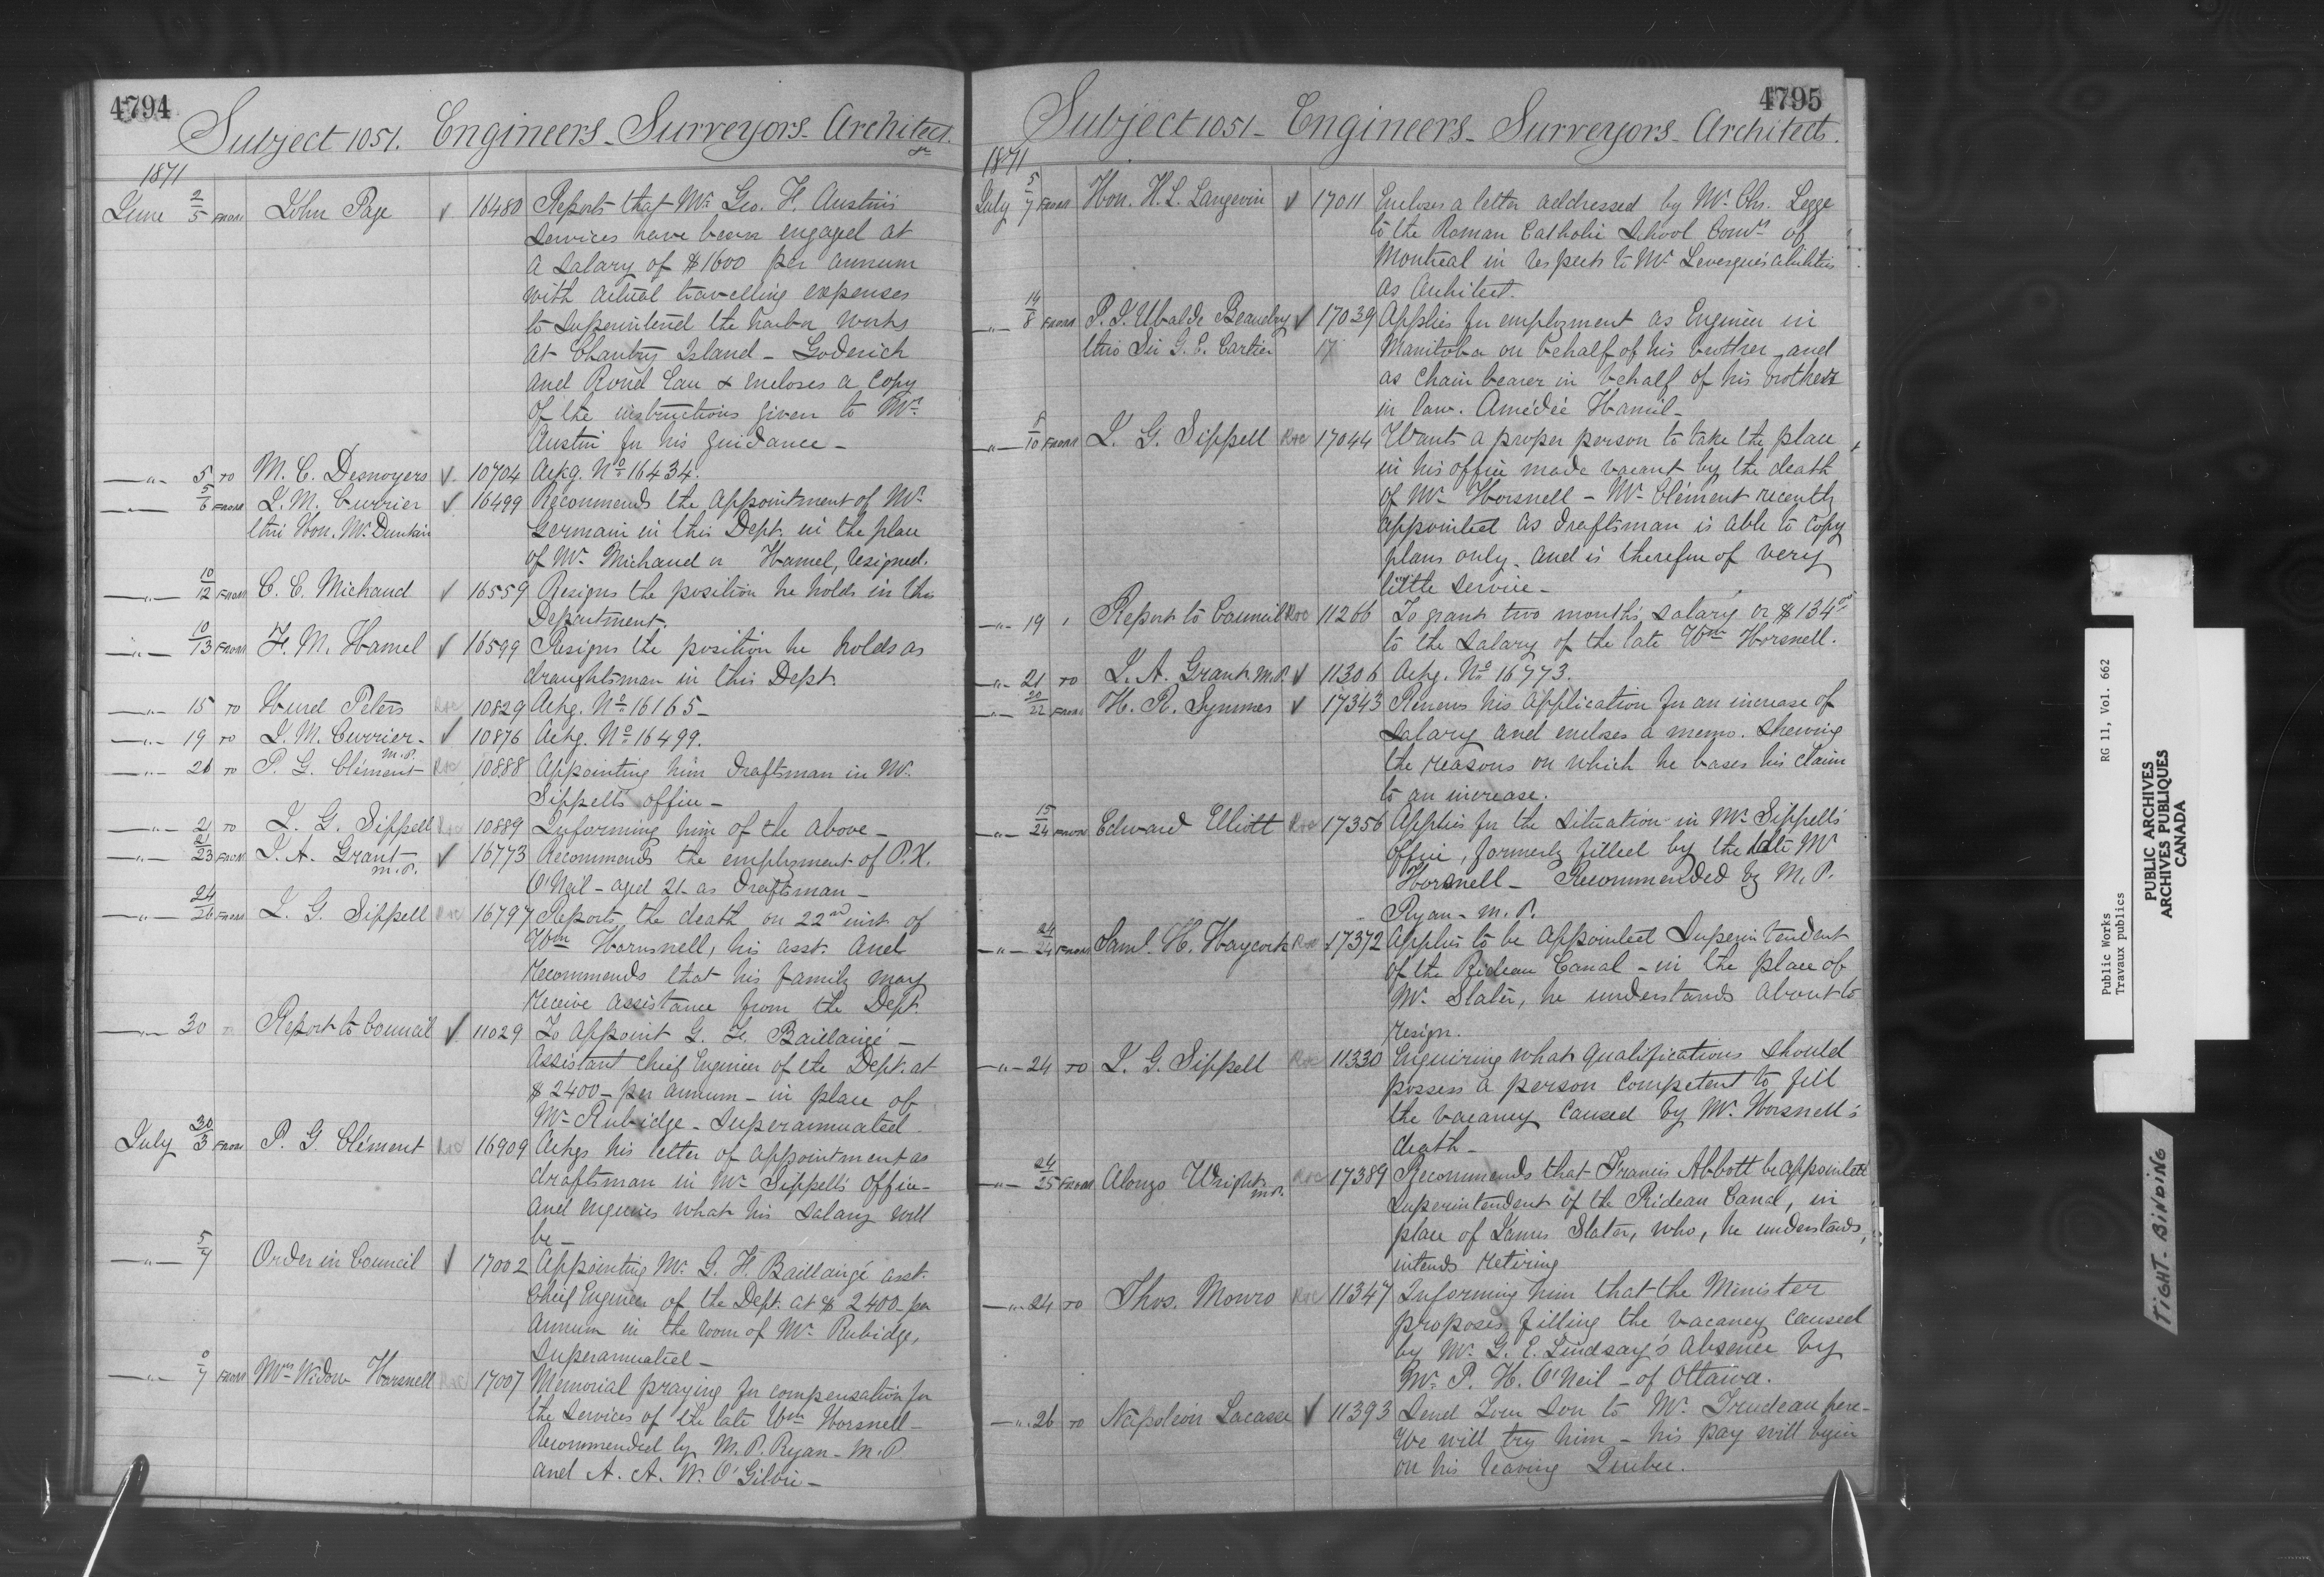 4794
Subject 1051. Engineers - Surveyors - Architect.
1871
June 2/5 FROM John Page ✓ 16480 Reports that Mr. Geo. F. Austin's
services have been engaged at
a salary of $1600 per annum
with actual travelling expenses
to superintend the harbor works
at Chantry Island - Goderich
and Rond Eau & encloses a copy
of the instructions given to Mr.
Austin for his guidance -
" 5 TO M. C. Desnoyers ✓ 10704 Ackg. No. 16434.
" 5/6 FROM J. M. Currier ✓ 16499 Recommends the appointment of Mr.
thro Hon. Mr. Dunkin Germain in this Dept. in the place
of Mr. Michaud or Hamel, resigned.
" 10/12 FROM C. E. Michaud ✓ 16559 Resigns the position he holds in this
Department.
" 10/13 FROM F. M. Hamel ✓ 16599 Resigns the position he holds as
draughtsman in this Dept.
" 15 TO Hurd Peters Roc 10829 Ackg. No. 16165 -
" 19 TO J. M. Currier - M.P. ✓ 10876 Ackg. No. 16499.
" 20 TO P. G. Clément Roc 10888 Appointing him draftsman in Mr.
Sippell's office -
" 21 TO J. G. Sippell Roc 10889 Informing him of the above -
" 21/23 FROM J. A. Grant M.P. ✓ 16773 Recommends the employment of P. H.
O'Neil - aged 21 - as draftsman -
" 24/26 FROM J. G. Sippell Roc 16797 Reports the death on 22nd inst of
Wm Hornsnell, his asst. and
recommends that his family may
receive assistance from the Dept.
" 30 Report to Council ✓ 11029 To appoint G. F. Baillairgé -
Assistant Chief Engineer of the Dept. at
$2400 - per annum - in place of
Mr. Rubidge - Superannuated.
July 30/3 FROM P. G. Clément Roc 16909 Ackgs his letter of appointment as
draftsman in Mr. Sippell's office -
and enquires what his salary will
be -
" 5/7 Order in Council ✓ 17002 Appointing Mr. G. F. Baillairgé asst.
Chief Engineer of the Dept. at $2400 - per
annum in the room of Mr. Rubidge,
Superannuated -
" 7 FROM Mrs Widow Horsnell Roc 17007 Memorial praying for compensation for
the services of the late Wm Horsnell -
Recommended by M. P. Ryan - M.P.
and A. A. W. O'Gilvie -
4795
Subject 1051 - Engineers - Surveyors - Architects.
1871
July 5/7 FROM Hon. H. L. Langevin ✓ 17011 Encloses a letter addressed by Mr. Chs. Legge
to the Roman Catholic School Comrs of
Montreal in respects to Mr. Levesque's abilities
as Architect.
" 14/8 FROM P. J. Ubalde Beaudry ✓ 17039 Applies for employment as Engineer in
thro Sir G. E. Cartier 17 Manitoba on behalf of his brother - and
as chain bearer in behalf of his brother
in law. Amédée Hamil -
" 8/10 FROM J. G. Sippell Roc 17044 Wants a proper person to take the place
in his office made vacant by the death
of Mr. Horsnell - Mr. Clément recently
appointed as draftsman is able to copy
plans only - and is therefore of very
little service -
" 19 Report to Council Roc 11266 To grant two month's salary or $134
to the salary of the late Wm Horsnell.
" 21 TO J. A. Grant M.P. ✓ 11306 Ackg. No. 16773.
" 20/22 FROM H. R. Symmes ✓ 17343 Renews his application for an increase of
salary and encloses a memo. shewing
the reasons on which he bases his claim
to an increase.
" 15/24 FROM Edward Elliott Roc 17356 Applies for the situation in Mr. Sippell's
office, formerly filled by the late Mr
Horsnell - Recommended by M. P.
Ryan - M.P.
" 24/24 FROM Saml. H. Haycock Roc 17372 Applies to be appointed Superintendent
of the Rideau Canal - in the place of
Mr. Slater, he understands about to
resign.
" 24 TO J. G. Sippell Roc 11330 Enquiring what qualifications should
possess a person competent to fill
the vacancy caused by Mr. Horsnell's
death -
" 24/25 FROM Alonzo Wright M.P. Roc 17389 Recommends that Francis Abbott be appointed
Superintendent of the Rideau Canal, in
place of James Slater, who, he understands,
intends retiring
" 24 TO Thos. Monro Roc 11347 Informing him that the Minister
proposes filling the vacancy caused
by Mr. G. E. Lindsay's absence by
Mr. P. H. O'Neil - of Ottawa.
" 26 TO Napoleon Lacasse ✓ 11393 Send your son to Mr. Trudeau here -
We will try him - his pay will begin
on his leaving Quebec.
Public Works RG 11, Vol. 662
Travaux publics
PUBLIC ARCHIVES
ARCHIVES PUBLIQUES
CANADA
TIGHT BINDING